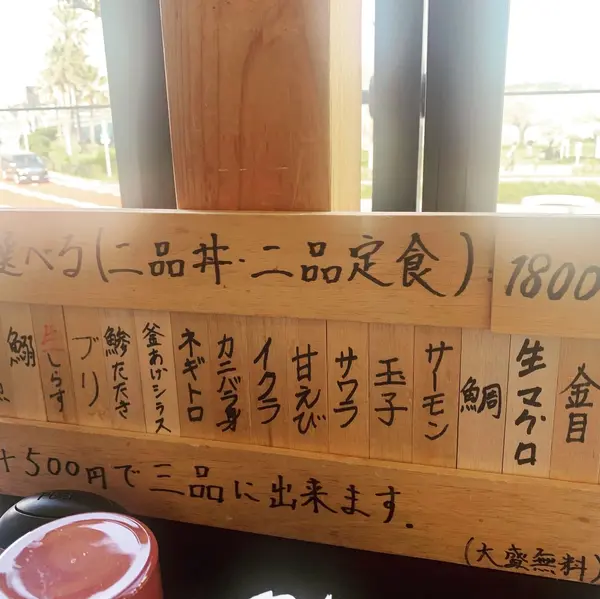 選べる(二品丼・二品定食)
1800
金目
生マグロ
鯛
サーモン
玉子
サワラ
甘えび
イクラ
カニバラ身
ネギトロ
釜あげシラス
鯵たたき
ブリ
生しらす
鰯
+500円で三品に出来ます.
(大盛無料)